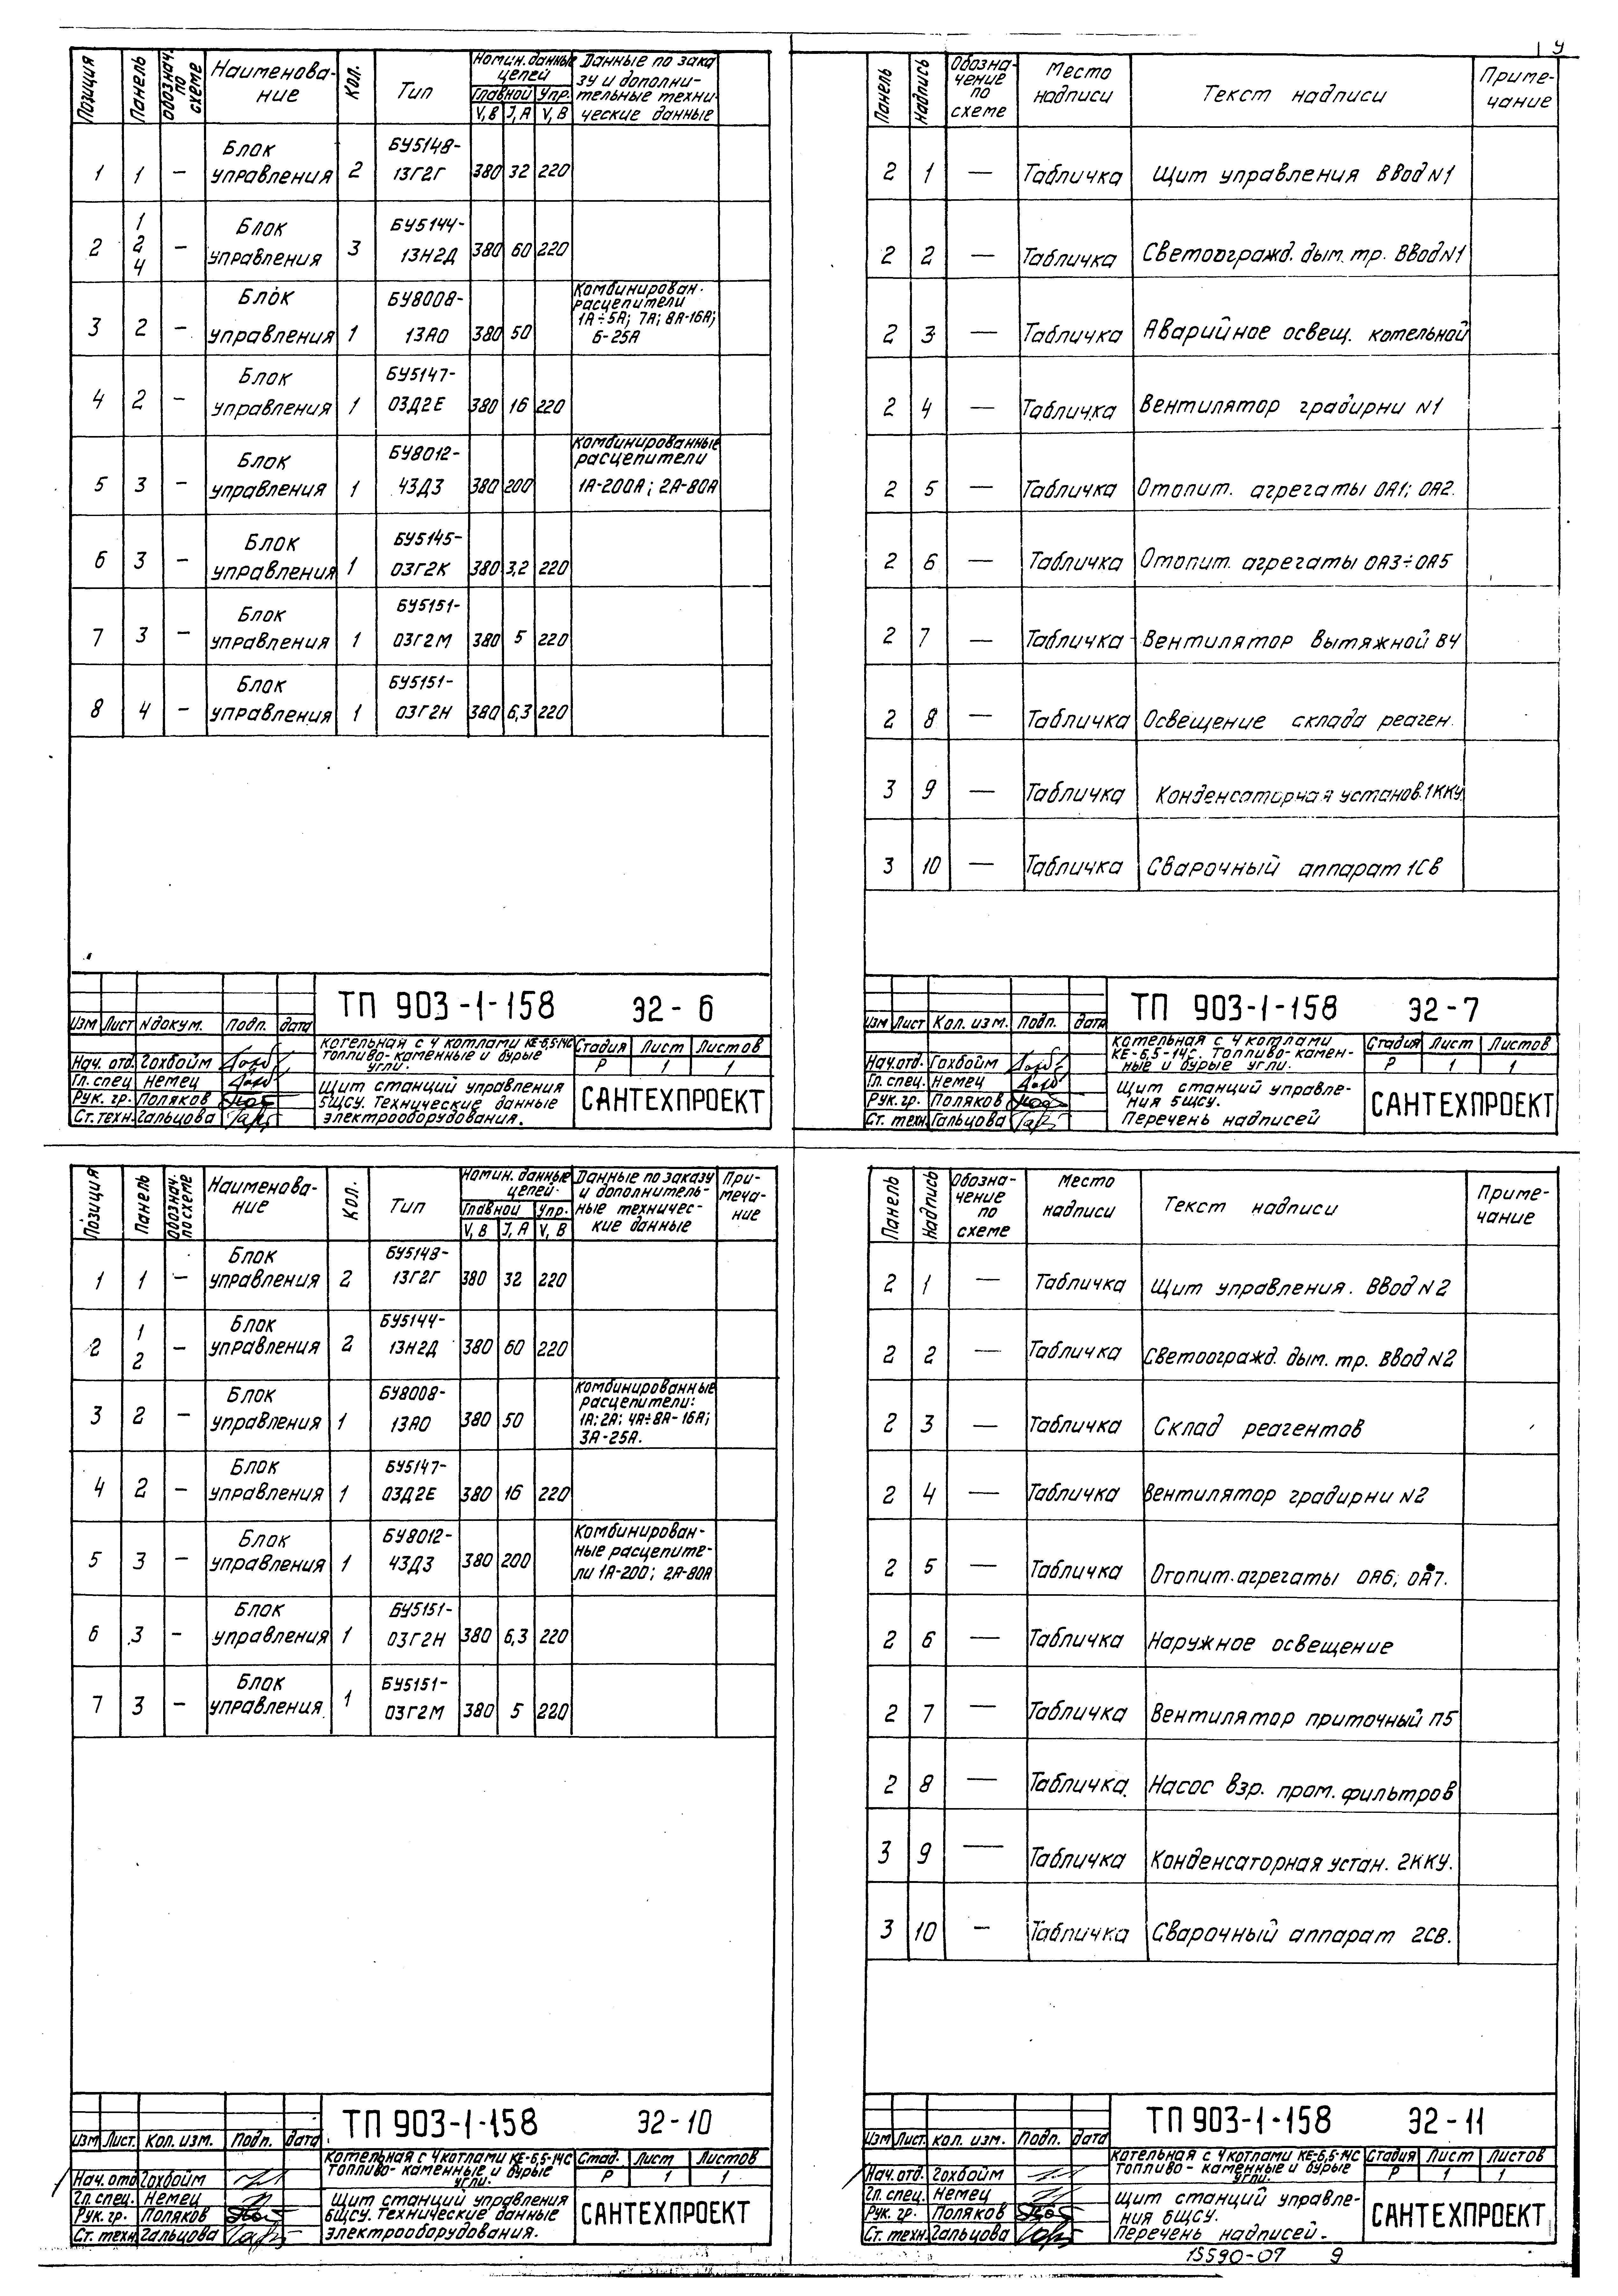 Позиция Панель Обознач. по схеме Наименование Кол. Тип Номин. данные цепей Данные по заказу и дополнительные технические данные
Главной Упр.
V, В J, А V, В
1 1 — Блок управления 2 БУ5148-13Г2Г 380 32 220
2 1 2 4 — Блок управления 3 БУ5144-13Н2Д 380 60 220
3 2 — Блок управления 1 БУ8008-13А0 380 50 Комбинирован. расцепители 1А÷5А; 7А; 8А-16А; 6-25А
4 2 — Блок управления 1 БУ5147-03Д2Е 380 16 220
5 3 — Блок управления 1 БУ8012-43Д3 380 200 Комбинированные расцепители 1А-200А; 2А-80А
6 3 — Блок управления 1 БУ5145-03Г2К 380 3,2 220
7 3 — Блок управления 1 БУ5151-03Г2М 380 5 220
8 4 — Блок управления 1 БУ5151-03Г2Н 380 6,3 220
ТП 903-1-158 Э2-6
Изм Лист N докум. Подп. дата
Котельная с 4 котлами КЕ-6,5-14С
Топливо-каменные и бурые
угли.
Стадия Лист Листов
Р 1 1
Нач. отд. Гохбойм
Гл. спец Немец
Рук. гр. Поляков
Ст. техн. Гальцова
Щит станций управления
5ЩСУ. Технические данные
электрооборудования.
САНТЕХПРОЕКТ
Панель Надпись Обозначение по схеме Место надписи Текст надписи Примечание
2 1 — Табличка Щит управления Ввод N1
2 2 — Табличка Светоогражд. дым. тр. Ввод N1
2 3 — Табличка Аварийное освещ. котельной
2 4 — Табличка Вентилятор градирни N1
2 5 — Табличка Отопит. агрегаты ОА1; ОА2.
2 6 — Табличка Отопит. агрегаты ОА3÷ОА5
2 7 — Табличка Вентилятор вытяжной В4
2 8 — Табличка Освещение склада реаген.
3 9 — Табличка Конденсаторная установ. 1ККУ
3 10 — Табличка Сварочный аппарат 1СВ
ТП 903-1-158 Э2-7
Изм Лист Кол. изм. Подп. дата
Котельная с 4 котлами
КЕ-6,5-14С. Топливо-камен-
ные и бурые угли.
Стадия Лист Листов
Р 1 1
Нач. отд. Гохбойм
Гл. спец. Немец
Рук. гр. Поляков
Ст. техн. Гальцова
Щит станций управле-
ния 5ЩСУ.
Перечень надписей
САНТЕХПРОЕКТ
Позиция Панель Обознач. по схеме Наименование Кол. Тип Номин. данные цепей. Данные по заказу и дополнительные технические данные Примечание
Главной Упр.
V, В J, А V, В
1 1 — Блок управления 2 БУ5148-13Г2Г 380 32 220
2 1 2 — Блок управления 2 БУ5144-13Н2Д 380 60 220
3 2 — Блок управления 1 БУ8008-13А0 380 50 Комбинированные расцепители: 1А; 2А; 4А÷8А-16А; 3А-25А.
4 2 — Блок управления 1 БУ5147-03Д2Е 380 16 220
5 3 — Блок управления 1 БУ8012-43Д3 380 200 Комбинированные расцепители 1А-200; 2А-80А
6 3 — Блок управления 1 БУ5151-03Г2Н 380 6,3 220
7 3 — Блок управления 1 БУ5151-03Г2М 380 5 220
ТП 903-1-158 Э2-10
Изм Лист. Кол. изм. Подп. дата
Котельная с 4 котлами КЕ-6,5-14С
Топливо-каменные и бурые
угли.
Стад. Лист Листов
Р 1 1
Нач. отд Гохбойм
Гл. спец. Немец
Рук. гр. Поляков
Ст. техн. Гальцова
Щит станций управления
6ЩСУ. Технические данные
электрооборудования.
САНТЕХПРОЕКТ
Панель Надпись Обозначение по схеме Место надписи Текст надписи Примечание
2 1 — Табличка Щит управления. Ввод N2
2 2 — Табличка Светоогражд. дым. тр. Ввод N2
2 3 — Табличка Склад реагентов
2 4 — Табличка Вентилятор градирни N2
2 5 — Табличка Отопит. агрегаты ОА6; ОА7.
2 6 — Табличка Наружное освещение
2 7 — Табличка Вентилятор приточный П5
2 8 — Табличка. Насос взр. пром. фильтров
3 9 — Табличка Конденсаторная устан. 2ККУ.
3 10 — Табличка Сварочный аппарат 2СВ.
ТП 903-1-158 Э2-11
Изм Лист. Кол. изм. Подп. дата
Котельная с 4 котлами КЕ-6,5-14С
Топливо-каменные и бурые
угли.
Стадия Лист Листов
Р 1 1
Нач. отд. Гохбойм
Гл. спец. Немец
Рук. гр. Поляков
Ст. техн. Гальцова
Щит станций управле-
ния 6ЩСУ.
Перечень надписей.
САНТЕХПРОЕКТ
15590-07 9